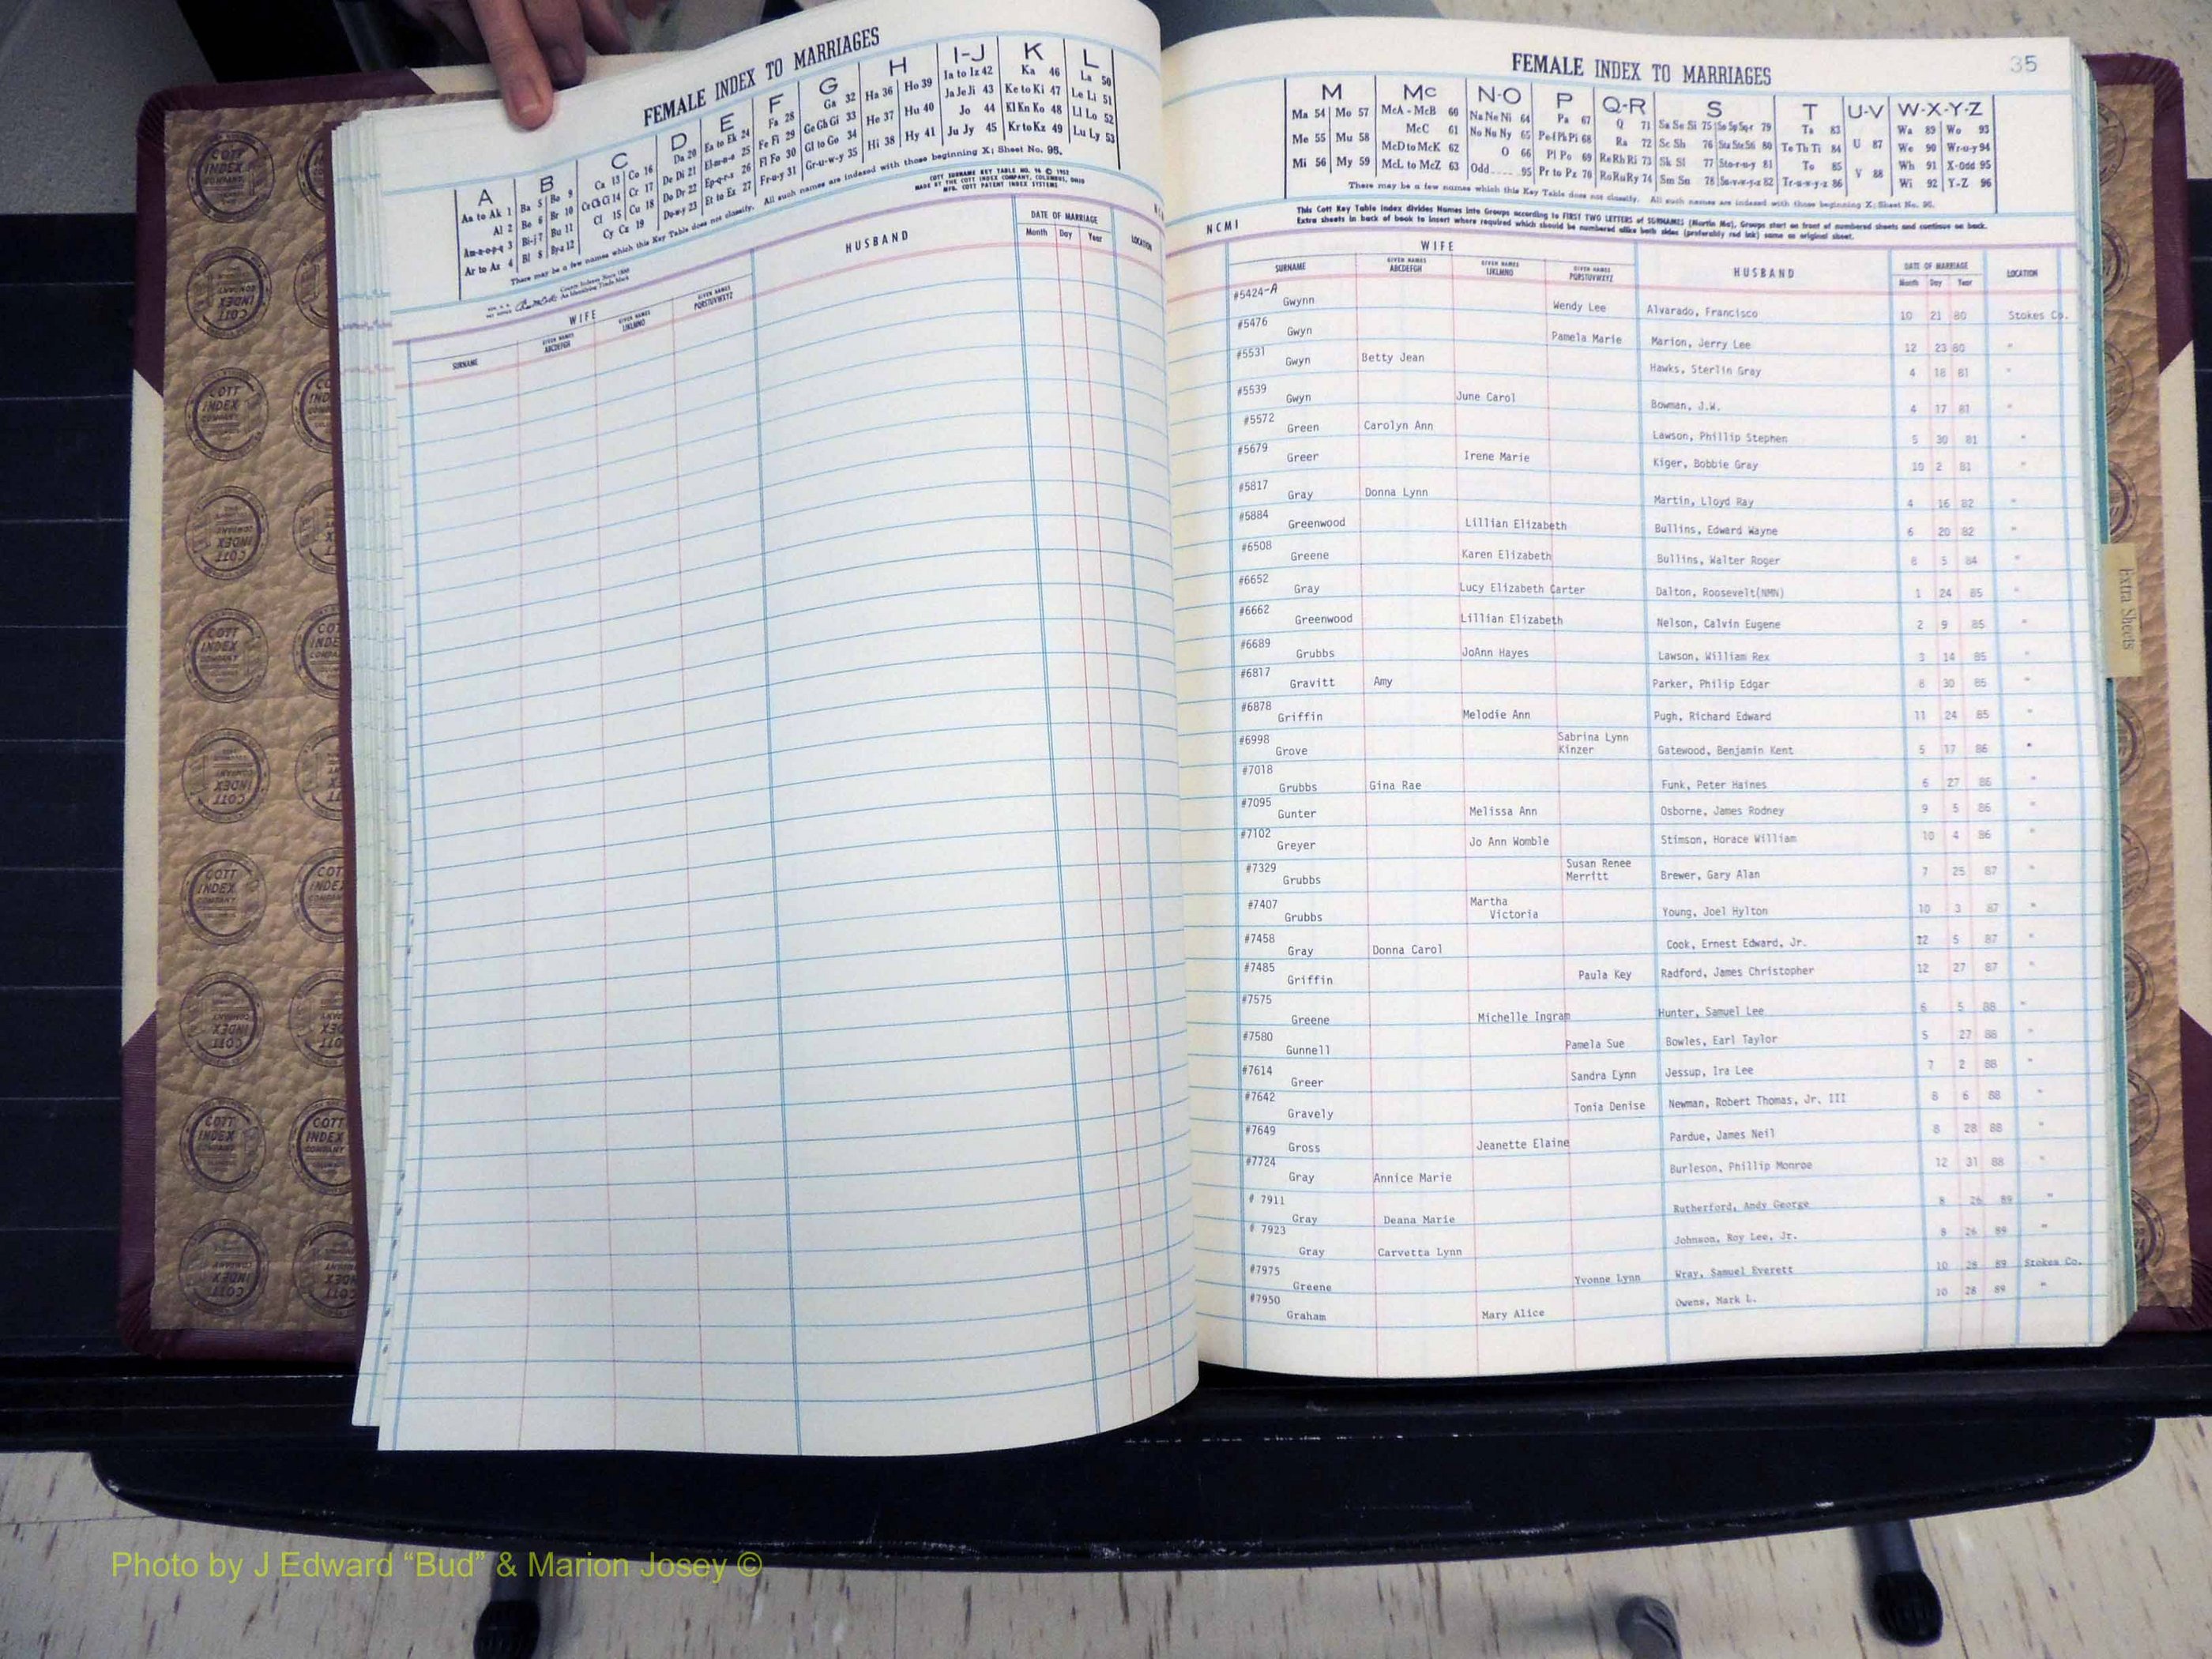 FEMALE INDEX TO MARRIAGES
A B C D E F G H I-J K L
Aa to Ak 1 Ba 5 Bo 9 Ca 13 Co 16 Da 20 Ea to Ek 24 Fa 28 Ga 32 Ha 36 Ho 39 Ia to Iz 42 Ka 46 La 50
Al 2 Be 6 Br 10 Ce Ch Ci 14 Cr 17 De Di 21 El-m-n-o 25 Fe Fi 29 Ge Gh Gi 33 He 37 Hu 40 Ja Je Ji 43 Ke to Ki 47 Le Li 51
Am-n-o-p-q 3 Bi-j 7 Bu 11 Cl 15 Cu 18 Do Dr 22 Ep-q-r-s 26 Fl Fo 30 Gl to Go 34 Hi 38 Hy 41 Jo 44 Kl Kn Ko 48 Ll Lo 52
Ar to Az 4 Bl 8 By-z 12 Cy Cz 19 Du-w-y 23 Et to Ex 27 Fr-u-y 31 Gr-u-w-y 35 Ju Jy 45 Kr to Kz 49 Lu Ly 53
There may be a few names which this Key Table does not classify. All such names are indexed with those beginning X; Sheet No. 95.
COTT SURNAME KEY TABLE NO. 96 © 1952
MADE BY THE COTT INDEX COMPANY, COLUMBUS, OHIO
MFG. COTT PATENT INDEX SYSTEMS
WIFE HUSBAND DATE OF MARRIAGE LOCATION
SURNAME GIVEN NAMES ABCDEFGH GIVEN NAMES IJKLMNO GIVEN NAMES PQRSTUVWXYZ Month Day Year
FEMALE INDEX TO MARRIAGES 35
M Mc N-O P Q-R S T U-V W-X-Y-Z
Ma 54 Mo 57 McA - McB 60 Na Ne Ni 64 Pa 67 Q 71 Sa Se Si 75 So Sp Sq-r 79 Ta 83 U 87 Wa 89 Wo 93
Me 55 Mu 58 McC 61 No Nu Ny 65 Pe-f Ph Pi 68 Ra 72 Sc Sh 76 Sta Ste St6 80 Te Th Ti 84 V 88 We 90 Wr-u-y 94
Mi 56 My 59 McD to McK 62 O 66 Pl Po 69 Re Rh Ri 73 Sk Sl 77 Sto-r-u-y 81 To 85 Wh 91 X-Odd 95
McL to McZ 63 Odd 95 Pr to Pz 70 Ro Ru Ry 74 Sm Sn 78 Su-v-w-y-z 82 Tr-u-w-y-z 86 Wi 92 Y-Z 96
There may be a few names which this Key Table does not classify. All such names are indexed with those beginning X; Sheet No. 95.
This Cott Key Table Index divides Names into Groups according to FIRST TWO LETTERS of SURNAMES (Martin Ma), Groups start on front of numbered sheets and continue on back.
Extra sheets in back of book to insert where required which should be numbered alike both sides (preferably red ink) same as original sheet.
NCMI
WIFE HUSBAND DATE OF MARRIAGE LOCATION
SURNAME GIVEN NAMES ABCDEFGH GIVEN NAMES IJKLMNO GIVEN NAMES PQRSTUVWXYZ Month Day Year
#5424-A Gwynn Wendy Lee Alvarado, Francisco 10 21 80 Stokes Co.
#5476 Gwyn Pamela Marie Marion, Jerry Lee 12 23 80 "
#5531 Gwyn Betty Jean Hawks, Sterlin Gray 4 18 81 "
#5539 Gwyn June Carol Bowman, J.W. 4 17 81 "
#5572 Green Carolyn Ann Lawson, Phillip Stephen 5 30 81 "
#5679 Greer Irene Marie Kiger, Bobbie Gray 10 2 81 "
#5817 Gray Donna Lynn Martin, Lloyd Ray 4 16 82 "
#5884 Greenwood Lillian Elizabeth Bullins, Edward Wayne 6 20 82 "
#6508 Greene Karen Elizabeth Bullins, Walter Roger 8 5 84 "
#6652 Gray Lucy Elizabeth Carter Dalton, Roosevelt(NMN) 1 24 85 "
#6662 Greenwood Lillian Elizabeth Nelson, Calvin Eugene 2 9 85 "
#6689 Grubbs JoAnn Hayes Lawson, William Rex 3 14 85 "
#6817 Gravitt Amy Parker, Philip Edgar 8 30 85 "
#6878 Griffin Melodie Ann Pugh, Richard Edward 11 24 85 "
#6998 Grove Sabrina Lynn Kinzer Gatewood, Benjamin Kent 5 17 86 "
#7018 Grubbs Gina Rae Funk, Peter Haines 6 27 86 "
#7095 Gunter Melissa Ann Osborne, James Rodney 9 5 86 "
#7102 Greyer Jo Ann Womble Stimson, Horace William 10 4 86 "
#7329 Grubbs Susan Renee Merritt Brewer, Gary Alan 7 25 87 "
#7407 Grubbs Martha Victoria Young, Joel Hylton 10 3 87 "
#7458 Gray Donna Carol Cook, Ernest Edward, Jr. 12 5 87 "
#7485 Griffin Paula Key Radford, James Christopher 12 27 87 "
#7575 Greene Michelle Ingram Hunter, Samuel Lee 6 5 88 "
#7580 Gunnell Pamela Sue Bowles, Earl Taylor 5 27 88 "
#7614 Greer Sandra Lynn Jessup, Ira Lee 7 2 88 "
#7642 Gravely Tonia Denise Newman, Robert Thomas, Jr. III 8 6 88 "
#7649 Gross Jeanette Elaine Pardue, James Neil 8 28 88 "
#7724 Gray Annice Marie Burleson, Phillip Monroe 12 31 88 "
# 7911 Gray Deana Marie Rutherford, Andy George 8 26 89 "
# 7923 Gray Carvetta Lynn Johnson, Roy Lee, Jr. 8 26 89 "
#7975 Greene Yvonne Lynn Wray, Samuel Everett 10 28 89 Stokes Co.
#7950 Graham Mary Alice Owens, Mark L. 10 28 89 "
Extra Sheets
COTT INDEX COMPANY
Photo by J Edward “Bud” & Marion Josey ©